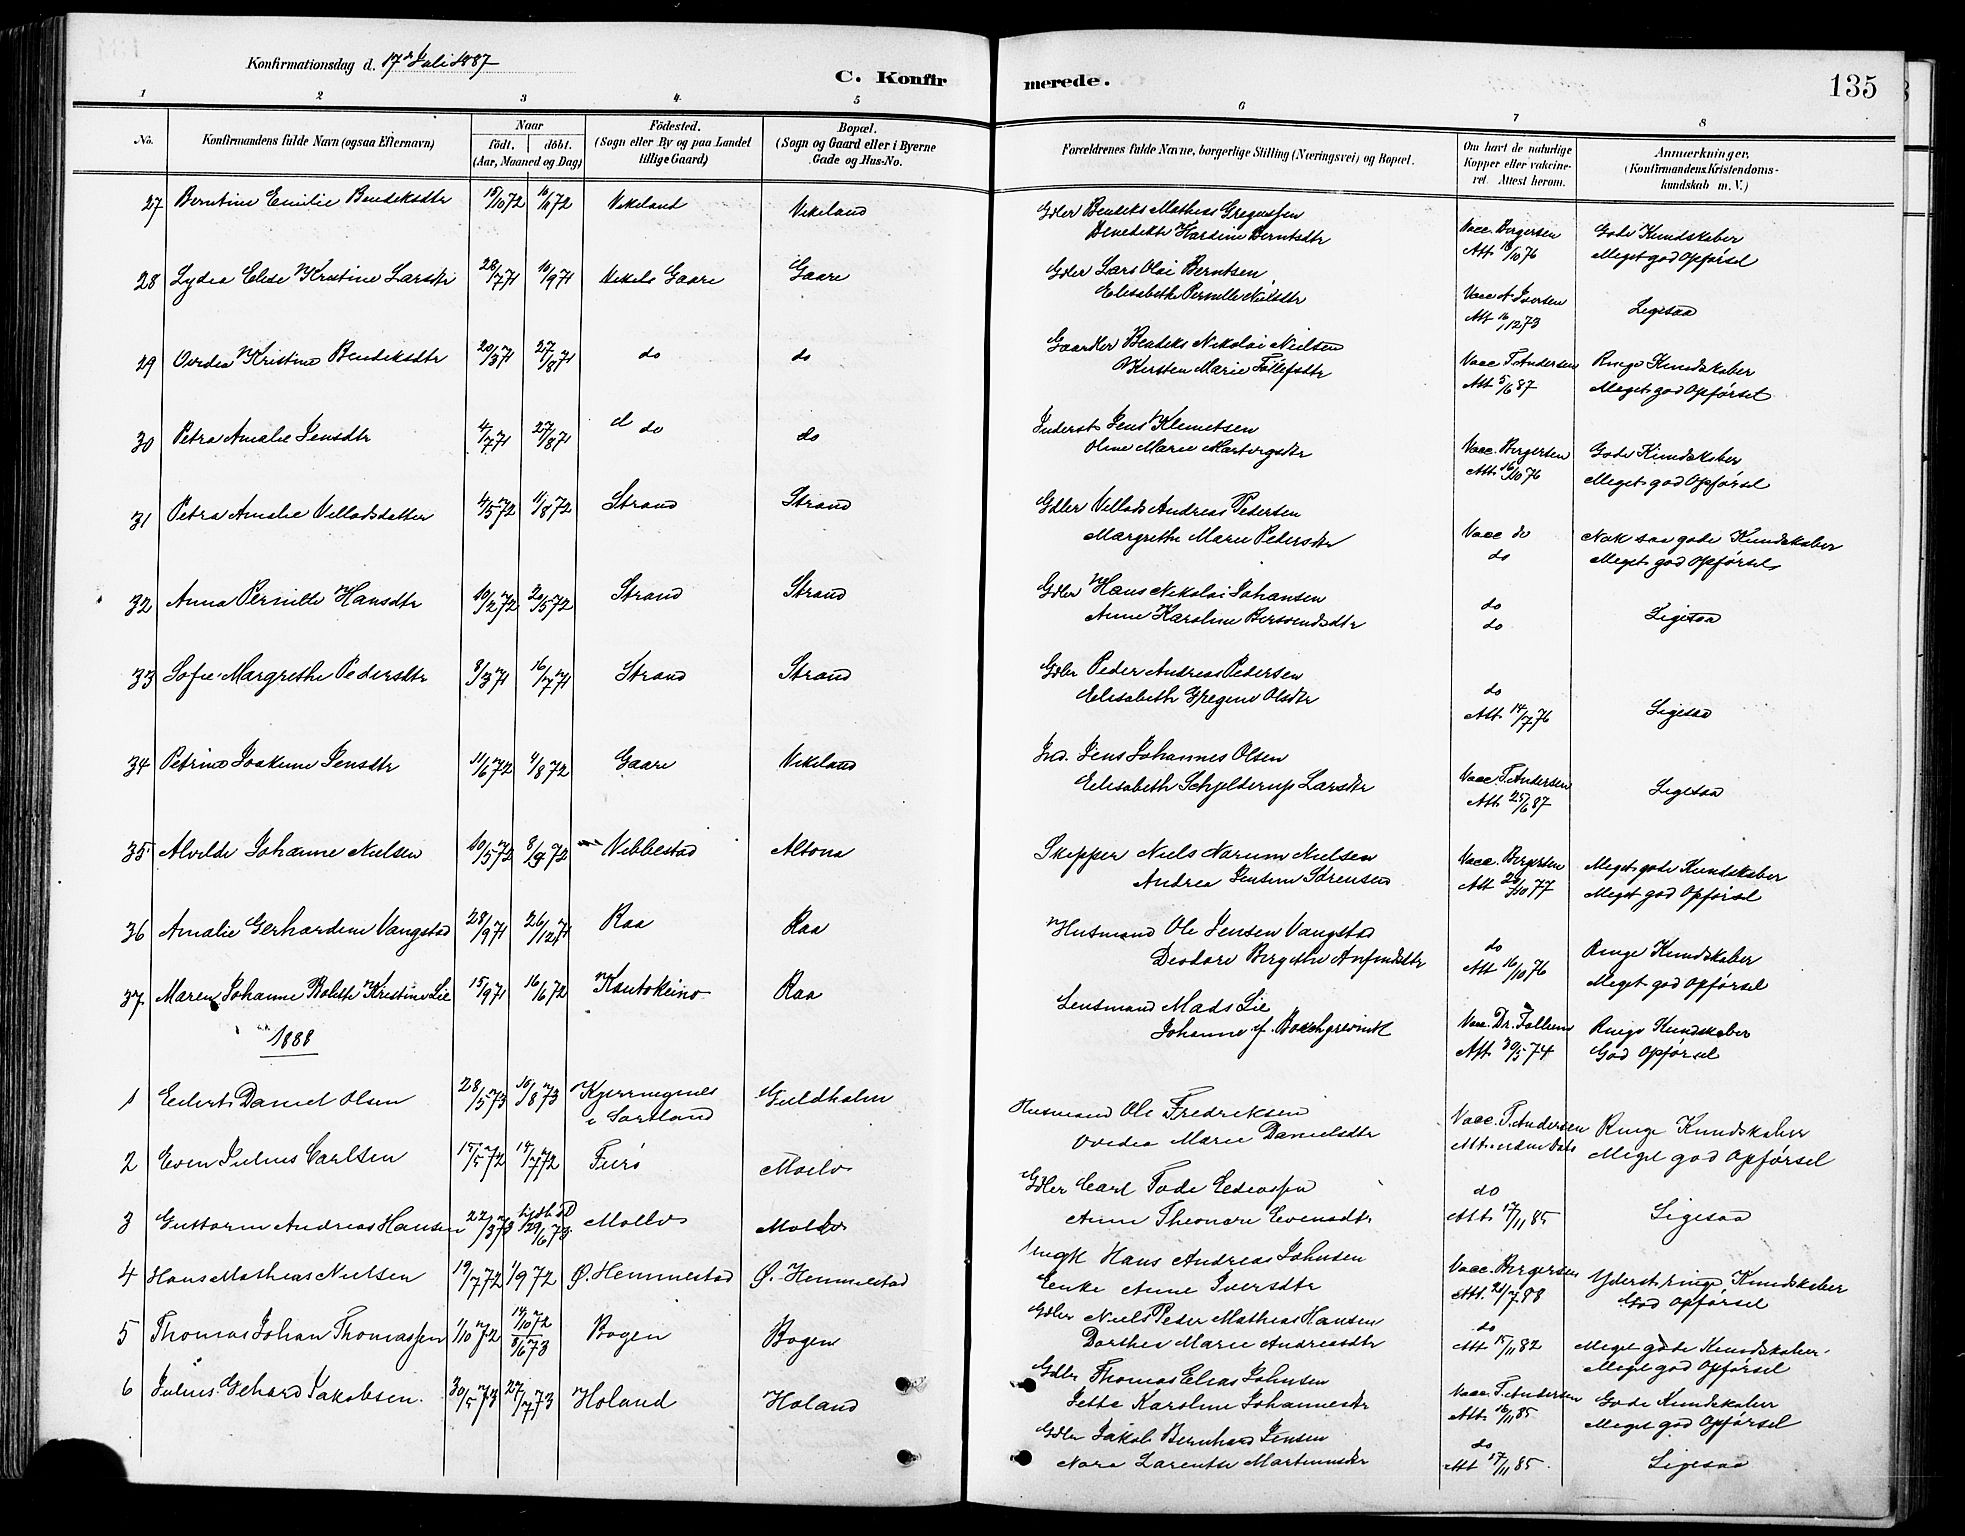 Konfirmationsdag d. 17de Juli 1887
C. Konfirmerede.
135
1 2 3 4. 5 6 7 8
No.
Konfirmandens fulde Navn (ogsaa Efternavn)
Naar
födt. döbt.
(Aar, Maaned og Dag)
Födested.
(Sogn eller By og paa Landet
tillige Gaard)
Bopæl.
(Sogn og Gaard eller i Byerne
Gade og Hus-No.
Forældrenes fulde Navne, borgerlige Stilling (Næringsvei) og Bopæl.
Om havt de naturlige
Kopper eller vakcine-
ret. Attest herom.
Anmærkninger,
(Konfirmandens Kristendoms-
kundskab m. V.)
27 Berntine Emilie Bendeksdtr 15/10 72 /72 Vikeland Vikeland Gdler Bendeks Mathias Gregussen Vacc. Bergersen Gode Kundskaber
Benedikte Hardine Berntsdtr Att 16/10 76 Meget god Opførsel
28 Lydia Elise Kristine Larsdtr 28/7 71 10/9 71 Vikels Gaare Gaare Gdler Lars Olai Berntsen Vacc A. Iversen Ligesaa
Elisabeth Pernille Nilsdtr Att 16/12 73
29 Ovedia Kristine Bendeksdtr 20/3 71 27/8 71 do do Gaardler Bendeks Nikolai Nielsen Vacc T. Andersen Ringe Kundskaber
Kirsten Marie Tollefsdtr Att 5/6 87 Meget god Opførsel
30 Petra Amalie Jensdtr 4/7 71 27/8 71 do do Inderst Jens Klemetsen Vacc. Bergersen Gode Kundskaber
Oline Marie Att 16/10 76 Meget god Opførsel
31 Petra Amalie Velladsdatter 4/5 72 11/8 72 Strand Strand Gdler Vellads Andreas Pedersen Vacc do Nok saa gode Kundskaber
Margrethe Marie Pedersdtr do Meget god Opførsel
32 Anna Pernille Hansdtr 10/2 72 20/5 72 Strand Strand Gdler Hans Nikolai Johansen do Ligesaa
Anne Karoline Bersvendsdtr do
33 Sofie Margrethe Pedersdtr 8/3 71 16/7 71 Strand Strand Gdler Peder Andreas Pedersen do Ligesaa
Elisabeth Gregine Olsdtr Att 14/7 76
34 Petrine Joakime Jensdtr 11/6 72 4/8 72 Gaare Vikeland Ind. Jens Johannes Olsen Vacc. T. Andersen Ligesaa
Elisabeth Schjelderup Larsdtr Att 25/6 87
35 Alvilde Johanne Nielsen 10/5 72 8/9 72 Vebbestad Altona Skipper Niels Narum Nielsen Vacc. Bergersen Meget gode Kundskaber
Andrea Jensine Sørensen Att 20/10 77 Meget god Opførsel
36 Amalie Gerhardine Vangstad 28/9 71 26/12 71 Raa Raa Husmand Ole Jensen Vangstad do Ringe Kundskaber
Deodore Bergithe Anfindsdtr Att 16/10 76 Meget god Opførsel
37 Maren Johanne Bolette Kristine Lie 15/9 71 16/6 72 Kautokeino Raa Lensmand Mads Lie Vacc. Dr. Ringe Kundskaber
Johanne f. Borchgrevink Att 30/5 74 God Opførsel
1888
1 Edert Daniel Olsen 28/5 73 10/8 73 Kjerringnes Guldholm Husmand Ole Fredriksen Vacc. T. Andersen Ringe Kundskaber
i Sortland Ovedia Marie Danielsdtr Att. uden Dato Meget god Opførsel
2 Even Julius Carlsen 15/5 72 14/7 72 Furø Moelv Gdler Carl Tode do Ligesaa
Anne Theonore Evensdtr Att 17/11 85
3 Guttorm Andreas Hansen 22/3 73 hjdbt 29/6 73 Moelv Moelv Ungk Hans Andreas Johnsen Vacc. Bergersen Yderst ringe Kundskaber
Enke Anne Iversdtr Att. 20/7 88 God Opførsel
4 Hans Mathias Nielsen 19/7 72 1/9 72 Ø. Hemmestad Ø. Hemmestad Gdler Niels Peder Mathias Hansen do Meget gode Kundskaber.
Dorthea Marie Andreasdtr Att 15/11 82 Meget god Opførsel
5 Thomas Johan Thomassen 1/10 72 14/10 72 Bogen Bogen Gdler Thomas Elias Johnsen Vacc. T. Andersen Gode Kundskaber
8/6 73 Jette Karoline Johannesdtr Att 16/11 85 Meget god Opførsel
6 Julius Gehard Jakobsen. 30/5 73 27/7 73 Holand Holand Gdler Jakob Bernhard Jensen do Ligesaa
Nora Larentse Martinusdtr Att 17/11 85.